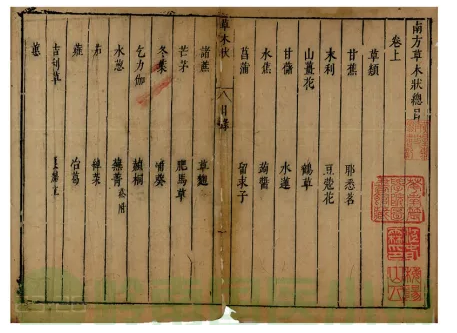 南方草木狀總目
卷上
草類
甘蕉 耶悉茗
末利 豆蔻花
山薑花 鶴草
甘藷 水蓮
水蕉 蒟醬
菖蒲 留求子
草木狀 目錄
諸蔗 草麴
芒茅 肥馬草
冬葉 蒲葵
乞力伽 赬桐
水葱 蕪菁 菘附
茄 綽菜
蕹 冶葛
吉利草
蕙